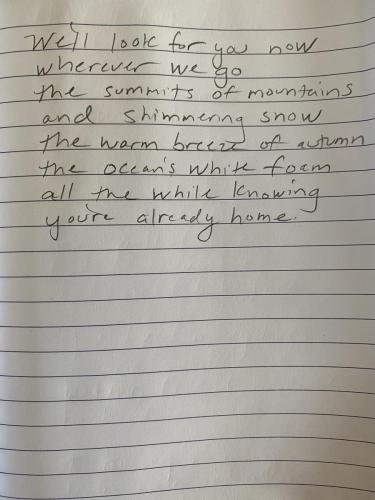 We'll look for you now
wherever we go
the summits of mountains
and shimmering snow
the warm breeze of autumn
the ocean's white foam
all the while knowing
you're already home.